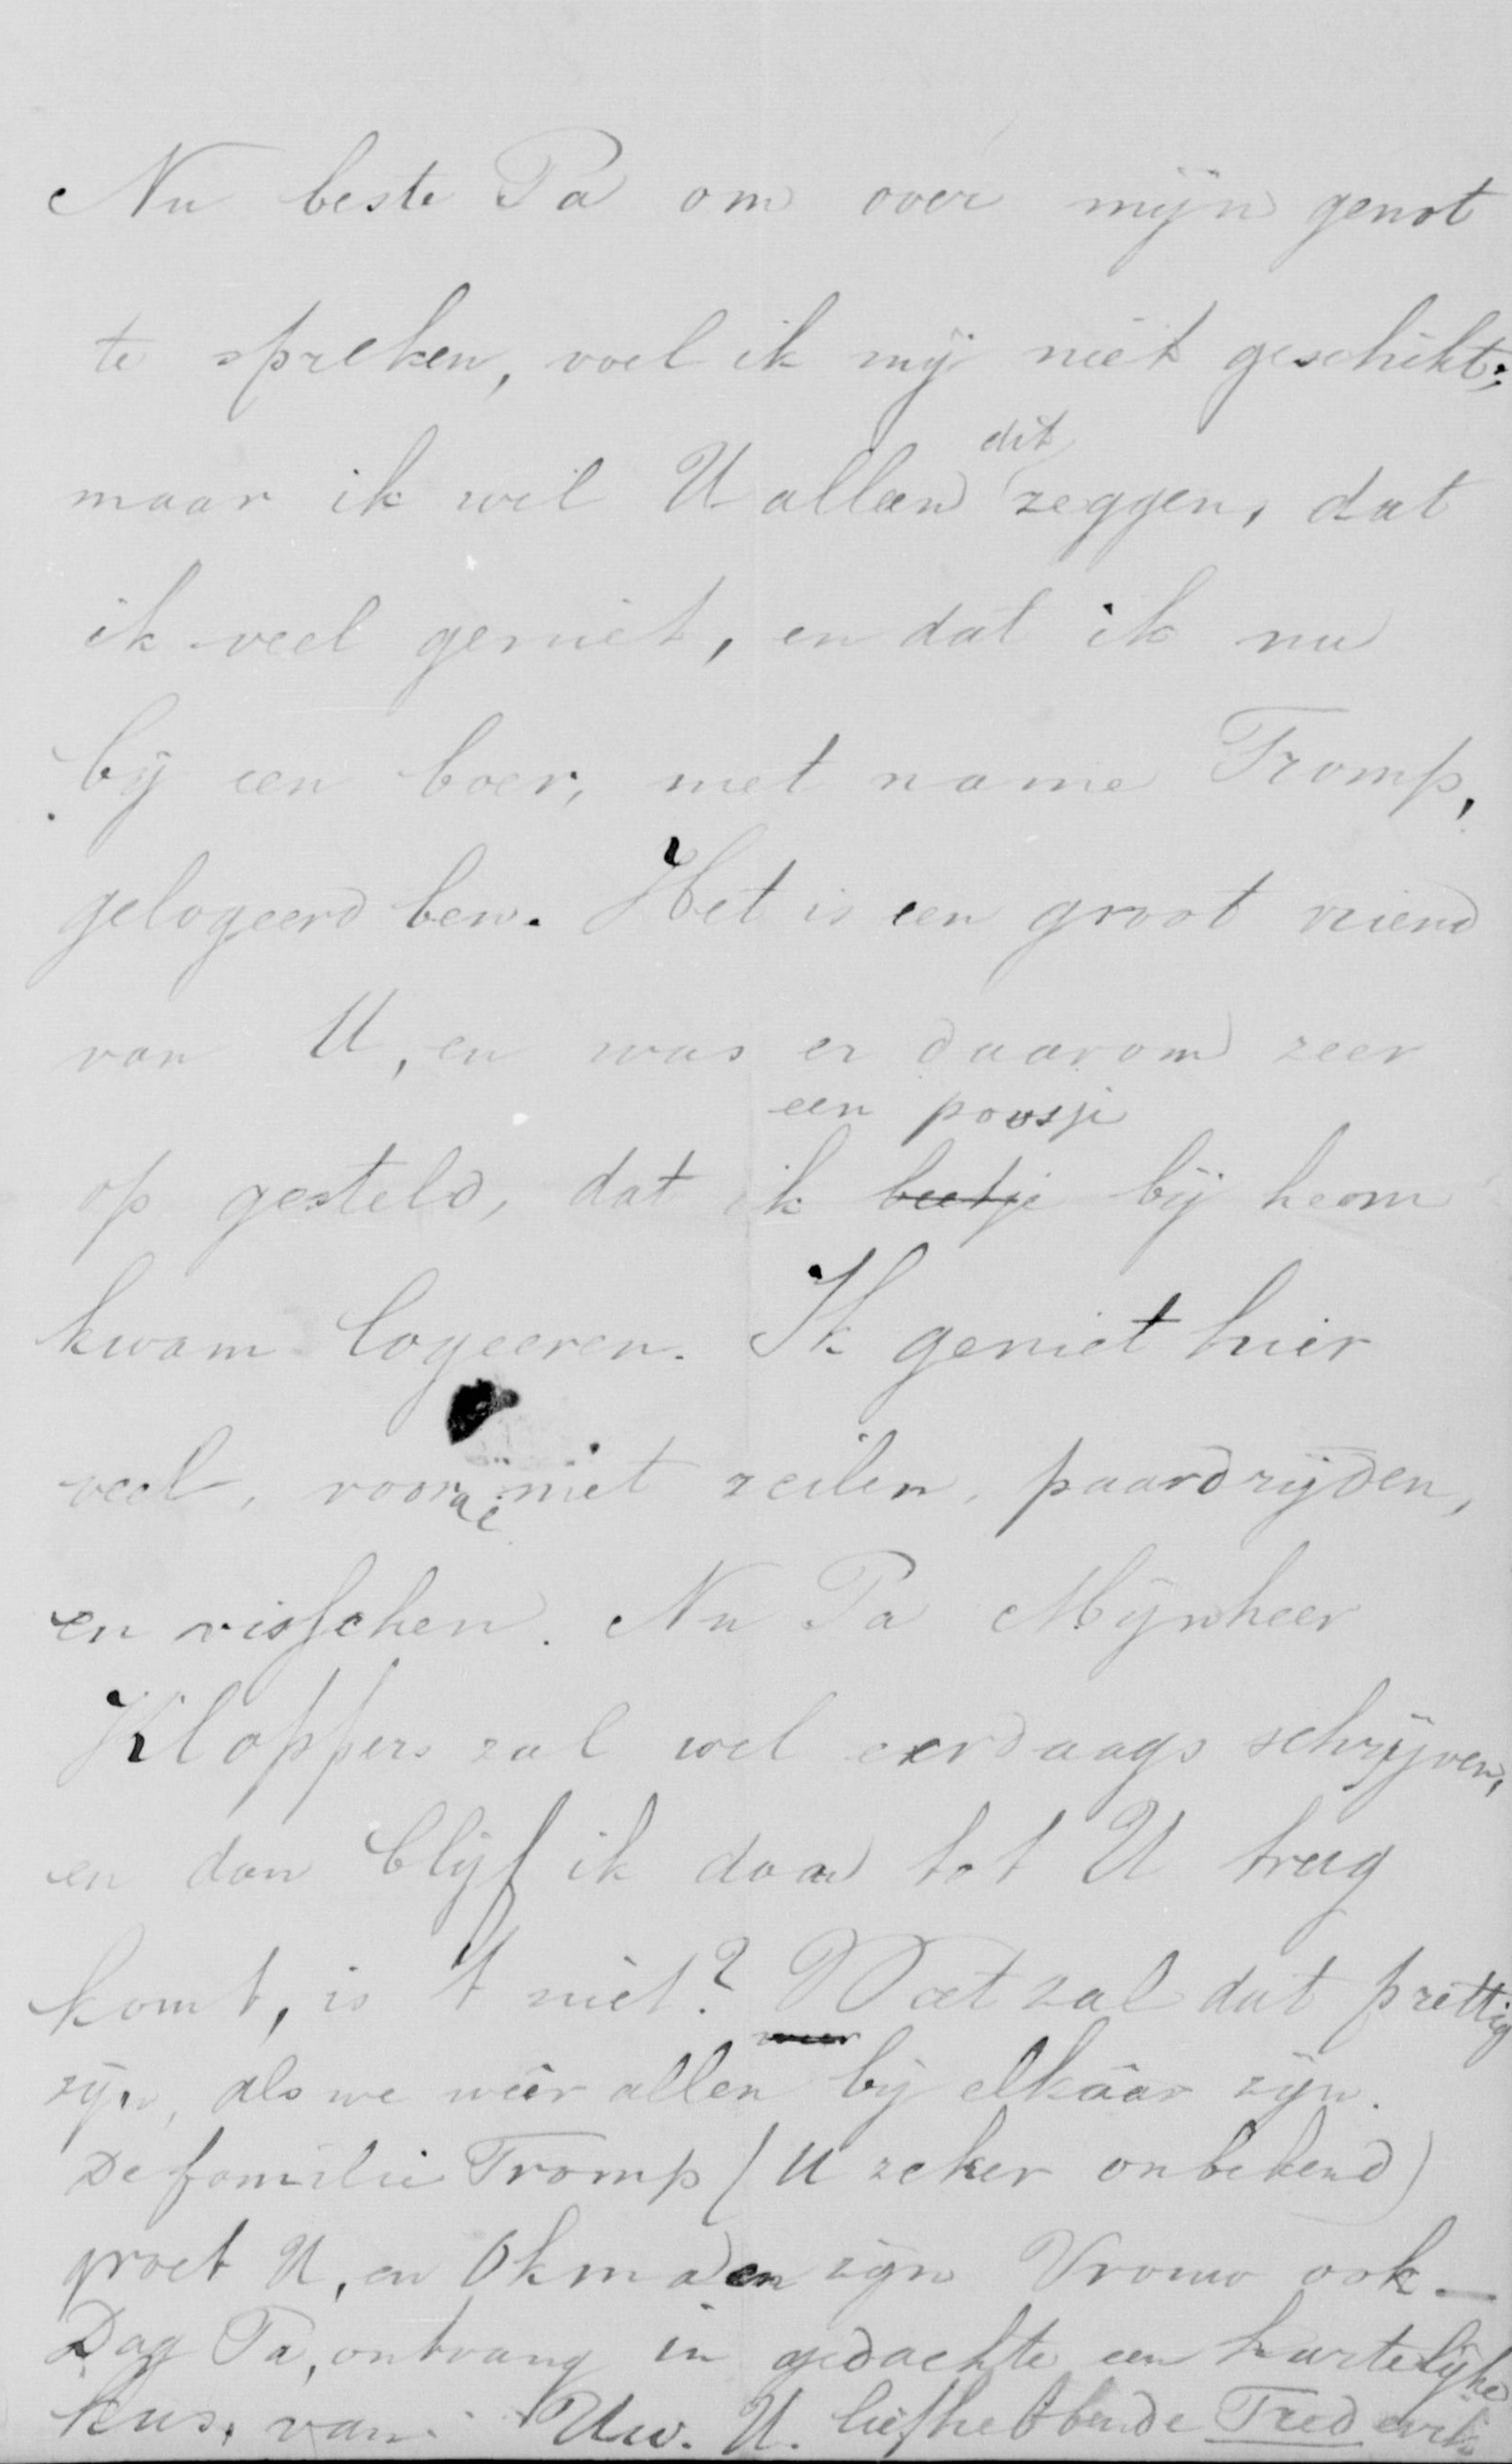 Nu beste Pa om over mijn genot
te spreken, voel ik mij niet geschikt;
dit
maar ik wil U alleen zeggen, dat
ik veel geniet, en dat ik nu
bij een boer, met name Tromp,
gelogeerd ben. Het is een groot vriend
van U, en was er daarom zeer
een poosje
op gesteld, dat ik beetje bij heom
kwam logeeren. Ik geniet hier
veel, vooral met zeilen, paardrijden,
en visschen. Nu Pa Mijnheer
Kloppers zal wel eerdaags schrijven,
en dan blijf ik daar tot U trug
komt, is 't niet? Wat zal dat prettig
zijn, als we weêr allen bij elkâar zijn.
De familie Tromp (U zeker onbekend)
groet U, en Okma en zijn Vrouw ook. —
Dag Pa, ontvang in gedachte een hartelijke
kus. van Uw. U. liefhebbende